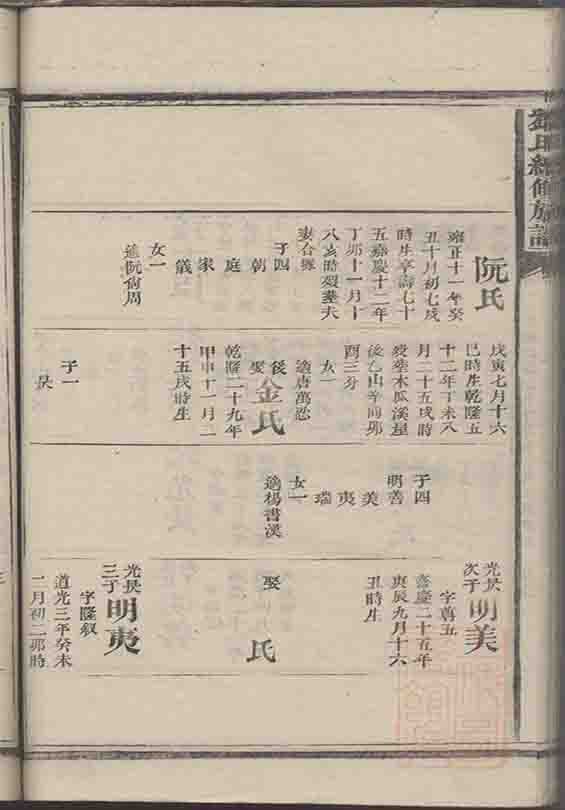 鄧氏續修族譜
阮氏
雍正十一年癸
丑十月初七戌
時生享壽七十
五嘉慶十二年
丁卯十一月十
八亥時歿葬夫
妻合塚
子四
朝
庭
家
儀
女一
適阮尙周
戊寅七月十六
巳時生乾隆五
十二年丁未八
月二十五戌時
歿葬木瓜溪屋
後乙山辛向卯
酉三分
女一
適唐萬忿
後娶金氏
乾隆二十九年
甲申十一月二
十五戌時生
子一
子四
明善
美
夷
瑞
女一
適楊書漢
光昃次子明美
字尊五
嘉慶二十五年
庚辰九月十六
丑時生
娶 氏
光昃三子明夷
字隆叙
道光三年癸未
二月初二卯時